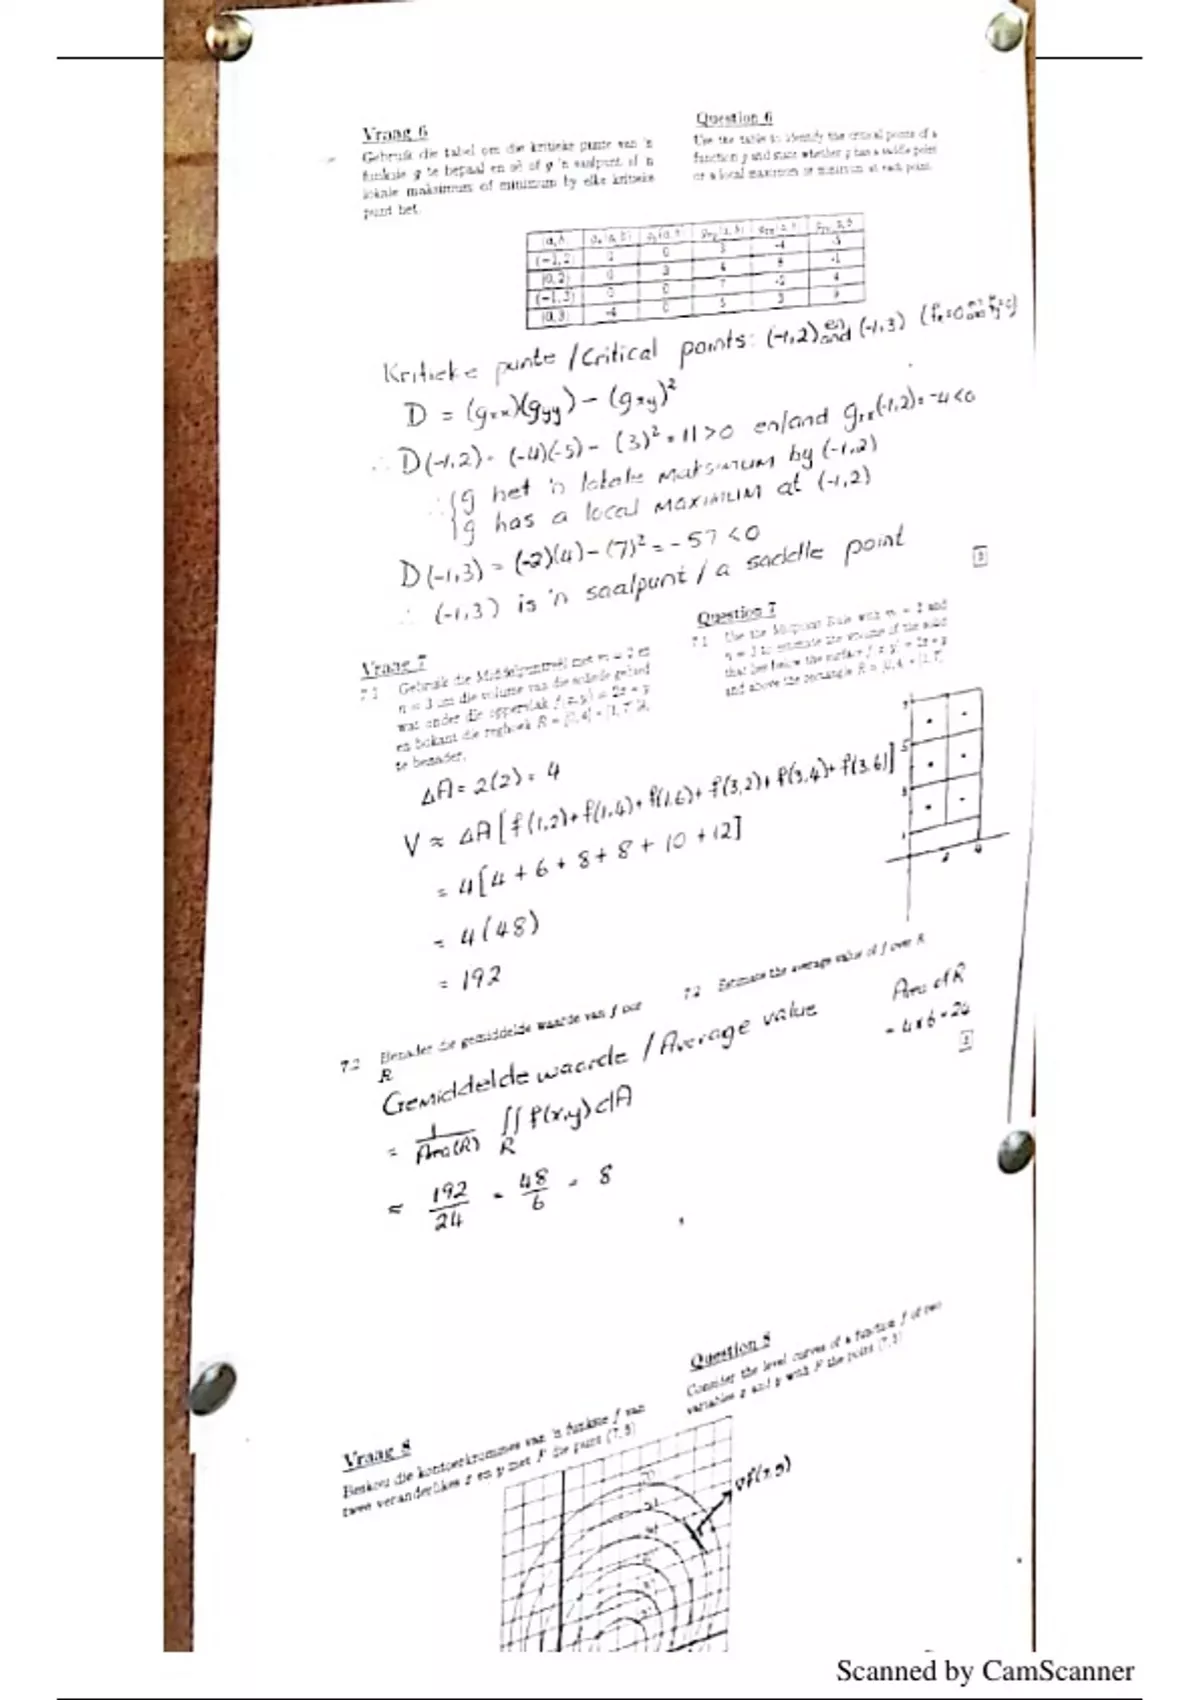 Vraag 6
Gebruik die tabel om die kritieke punte van 'n
funksie g te bepaal en sê of g 'n saalpunt of 'n
lokale maksimum of minimum by elke kritieke
punt het.
Question 6
Use the table to identify the critical points of a
function g and state whether g has a saddle point
or a local maximum or minimum at each point.
(-1,2) 0 0 3 -4 -5
(0,2) 0 3 8 -1
(-1,3) 0 0 7 -2 4
(0,3) -4 0 5 3 9
Kritieke punte / Critical points: (-1,2) en and (-1,3)
D = (gxx)(gyy) - (gxy)²
∴ D(-1,2) = (-4)(-5) - (3)² = 11 > 0 en/and gxx(-1,2) = -4 < 0
∴ { g het 'n lokale maksimum by (-1,2)
{ g has a local MAXIMUM at (-1,2)
D(-1,3) = (-2)(4) - (7)² = -57 < 0
∴ (-1,3) is 'n saalpunt / a saddle point
Vraag 7
7.1 Gebruik die Middelpuntreël met m = 2 en
n = 3 om die volume van die soliede gebied
wat onder die oppervlak f(x,y) = 2x + y
en bokant die reghoek R = [0,4] × [1,7] lê,
te benader.
Question 7
7.1 Use the Midpoint Rule with m = 2 and
n = 3 to estimate the volume of the solid
that lies below the surface f(x,y) = 2x + y
and above the rectangle R = [0,4] × [1,7]
7
5
3
1
2 4
ΔA = 2(2) = 4
V ≈ ΔA [f(1,2) + f(1,4) + f(1,6) + f(3,2) + f(3,4) + f(3,6)]
= 4[4 + 6 + 8 + 8 + 10 + 12]
= 4(48)
= 192
7.2 Benader die gemiddelde waarde van f oor
R
7.2 Estimate the average value of f over R
Gemiddelde waarde / Average value
Area of R
= 4x6 = 24
= 1/Area(R) ∫∫R f(x,y) dA
≈ 192/24 = 48/6 = 8
Vraag 8
Beskou die kontoerkrommes van 'n funksie f van
twee veranderlikes x en y met P die punt
Question 8
Consider the level curves of a function f of two
variables x and y with P the point
Scanned by CamScanner